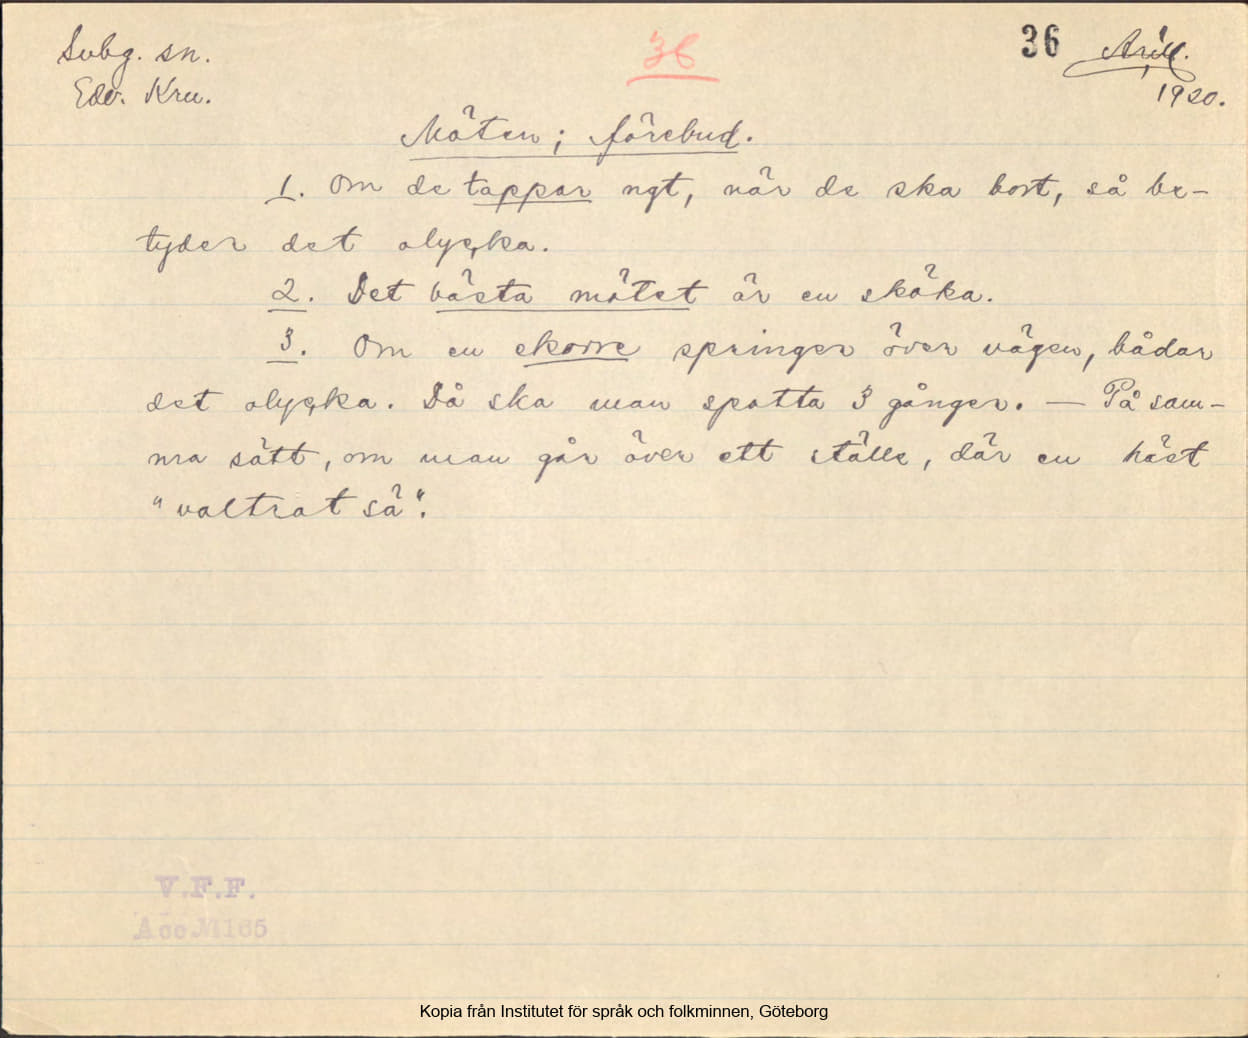 Svbg. sn.
Edv. Kru.
36
36
1920.
Möten; förebud.
1. Om de tappar ngt, när de ska bort, så be-
tyder det olycka.
2. Det bästa mötet är en sköka.
3. Om en ekorre springer över vägen, bådar
det olycka. Då ska man spotta 3 gånger. — På sam-
ma sätt, om man går över ett ställe, där en häst
"valtrat sä".
V.F.F.
Acc M165
Kopia från Institutet för språk och folkminnen, Göteborg